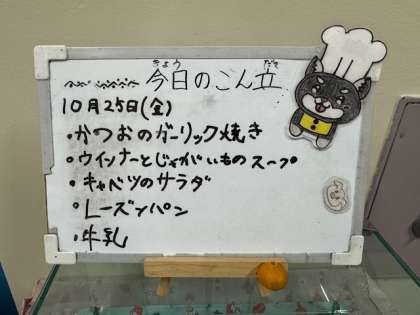 今日のこん立
きょう だて
10月25日(金)
・かつおのガーリック焼き
・ウインナーとじゃがいものスープ
・キャベツのサラダ
・レーズンパン
・牛乳